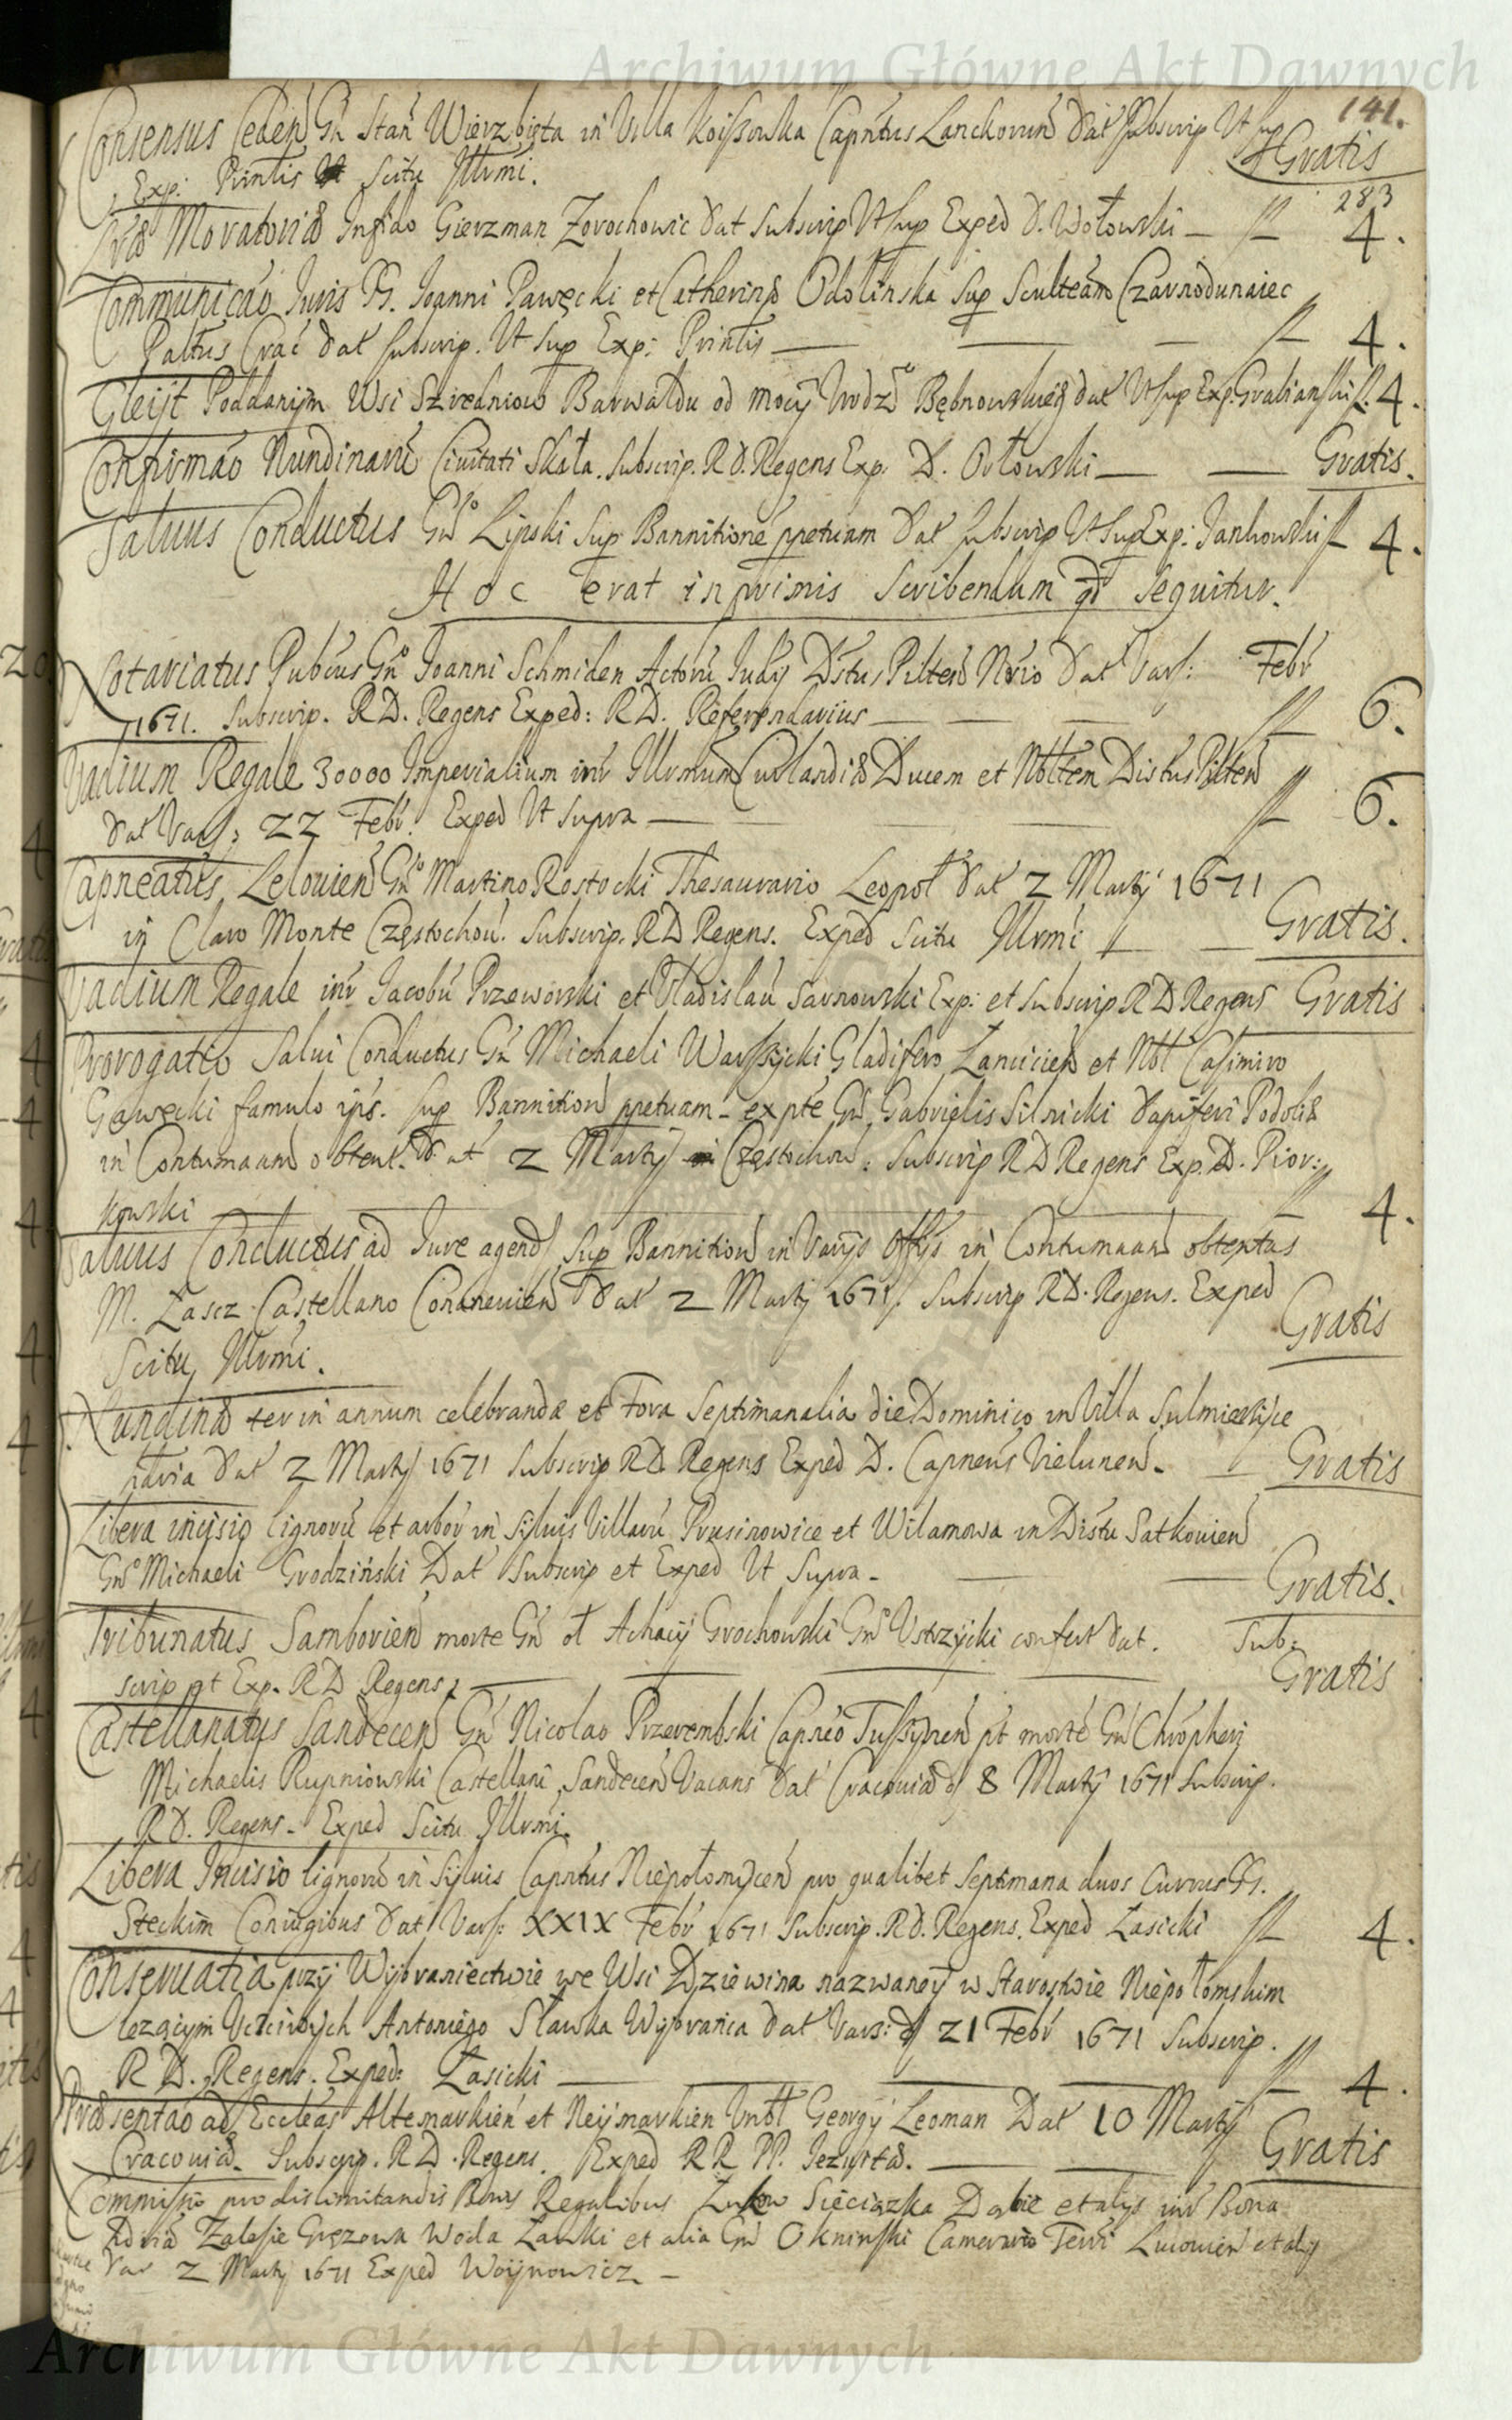 Archiwum Główne Akt Dawnych
141.
Consensus Ceden Gn Stan Wierzbięta in Villa Koissowka Capntus Lanckorun Dat Subscrip Ut sup
Exp: Printis Scitu Illrmi. Gratis
283
Moratoriū Infido Gierzman Zorochowic Dat Subscrip Ut sup Exped D. Wołowski — fl 4.
Communicao Juris GG. Joanni Pawęcki et Catherinæ Odolinska sup Sculteam Czarnodunaiec
Paltus Crac Dat subscrip. Ut sup Exp: Printis — fl 4.
Gleijt Poddanijm Wsi Szredniow Barwałdu od mocij Urodz° Bębnowskieg dat Ut sup Exp. Grabianski fl. 4.
Confirmao Nundinarū Ciuitati Skała. Subscrip. R D. Regens Exp. D. Orłowski — Gratis.
Saluus Conductus Gn° Lipski sup Bannitione ppetuam Dat subscrip Ut sup Exp: Jankowski fl 4.
Hoc erat inprimis Scribendum qd sequitur.
Notariatus Pubcus Gn° Joanni Schmiden Actorū Judij Dstus Pilten Nōrio Dat Vars: Febr
1671. Subscrip. RD. Regens Exped: RD. Referendarius — fl 6.
Vadium Regale 30000 Imperialium intr Illrmum Curlandiæ Ducem et Nbltem Distus Pilten
Dat Vars: 22 Febr. Exped Ut Supra — fl 6.
Capneatus Lelouien Gn° Martino Rostocki Thesaurario Leopol Dat 2 Martij 1671
in Claro Monte Częstochou. Subscrip. RD Regens. Exped Scitu Illrmi — Gratis.
Vadium Regale intr Jacobū Przeworski et Vladislaū Sarnowski Exp: et subscrip R D Regens Gratis
Prorogatio Salui Conductus Gn Michaeli Warssycki Gladifero Lancicien et Nbl Casimiro
Gawęcki famulo ips. sup Bannition ppetuam — expte Gn Gabrielis Silnicki Dapiferi Podoliæ
in Contumaam obtent. Dat 2 Martij Częstochou: Subscrip RD Regens Exp. D. Pior:
kowski — fl 4.
Saluus Conductus ad Jure agend sup Bannition in Varijs Offijs in Contumaam obtentas
M. Łascz Castellano Conaneuien Dat 2 Martij 1671. Subscrip RD. Regens. Exped
Scitu Illrmi. Gratis
Nundinæ ter in annum celebrandæ et Fora Septimanalia die Dominico in Villa Sulmierzijce
Dat 2 Martij 1671 Subscrip RD Regens Exped D. Capneus Vielunen — Gratis
Libera incisio lignorū et arbor in Syluis Villarū Prusinowice et Wilamowa in Distu Satkouien
Gn° Michaeli Grodziński Dat Subscrip et Exped Ut Supra — Gratis.
Tribunatus Samborien morte Gn ol Achacij Grochowski Gn Ustrzycki confert dat. Sub:
scrip et Exp. RD Regens — Gratis
Castellanatus Sandecen Gn Nicolao Przerembski Capneo Tussynen pt morte Gn Chrōpheri
Michaelis Rupniowski Castellani Sandecen Vacans Dat Cracouiæ d 8 Martij 1671 Subscrip.
RD. Regens — Exped Scitu Illrmi.
Libera Incisio lignorū in Syluis Capntus Niepołomicen pro qualibet Septimana duos Currus GG.
Steckim Coniugibus Dat Vars: XXIX Febr 1671 Subscrip. RD. Regens. Exped Lasicki fl 4.
Conseruatia przij Wybranie​ctwie we Wsi Dziewina nazwaneij w Starostwie Niepołomskim
lezącym Uczciwych Antoniego Sławka Wybrańca Dat Vars: d 21 Febr 1671 Subscrip.
RD. Regens. Exped: Lasicki — fl 4.
Præsentao ad Eccleas Altemarkien et Neijmarkien Vnbl Georgij Leoman Dat 10 Martij
Cracouiæ. Subscrip. RD. Regens. Exped RR PP. Jezuitæ. — Gratis
Commissio pro dislimitandis Bonis Regalibus Łukow Sieciązka Dąbie et alijs intr Bona
Zalesie Gręzowa Wola Ławki et alia Gn Okninski Camerario Terri Lucouien et alij
Dat 2 Martij 1671 Exped Woijnowicz —
Archiwum Główne Akt Dawnych